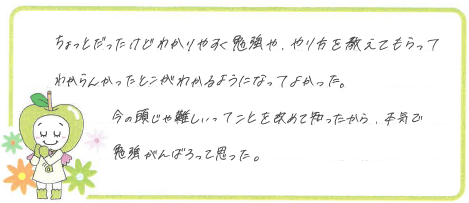 ちょっとだったけどわかりやすく勉強や、やり方を教えてもらって
わからんかったとこがわかるようになってよかった。
今の頭じゃ難しいってことを改めて知ったから、本気で
勉強がんばろって思った。